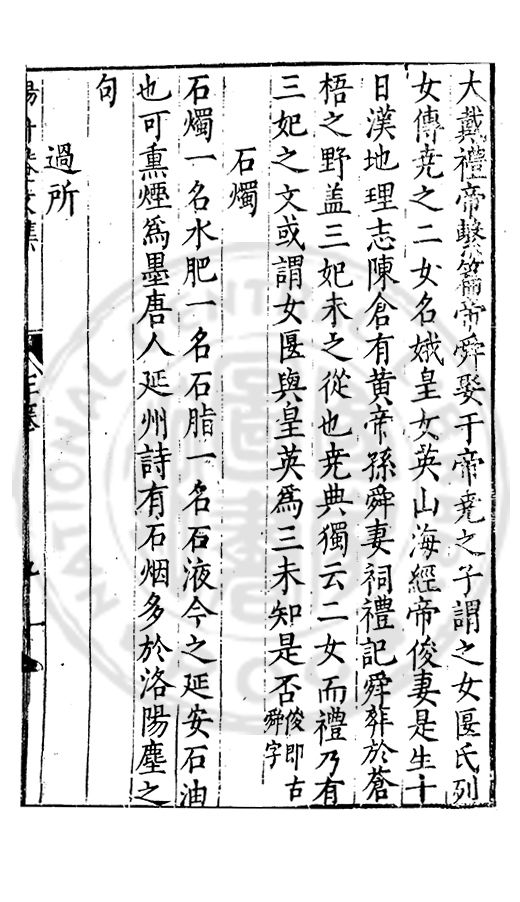 大戴禮帝繫篇帝舜娶于帝堯之子謂之女匽氏列
女傳堯之二女名娥皇女英山海經帝俊妻是生十
日漢地理志陳倉有黄帝孫舜妻祠禮記舜葬於蒼
梧之野盖三妃未之從也堯典獨云二女而禮乃有
三妃之文或謂女匽與皇英爲三未知是否俊即古
舜字
石燭
石燭一名水肥一名石脂一名石液今之延安石油
也可熏煙爲墨唐人延州詩有石烟多於洛陽塵之
句
過所
NATIONAL CENTRAL